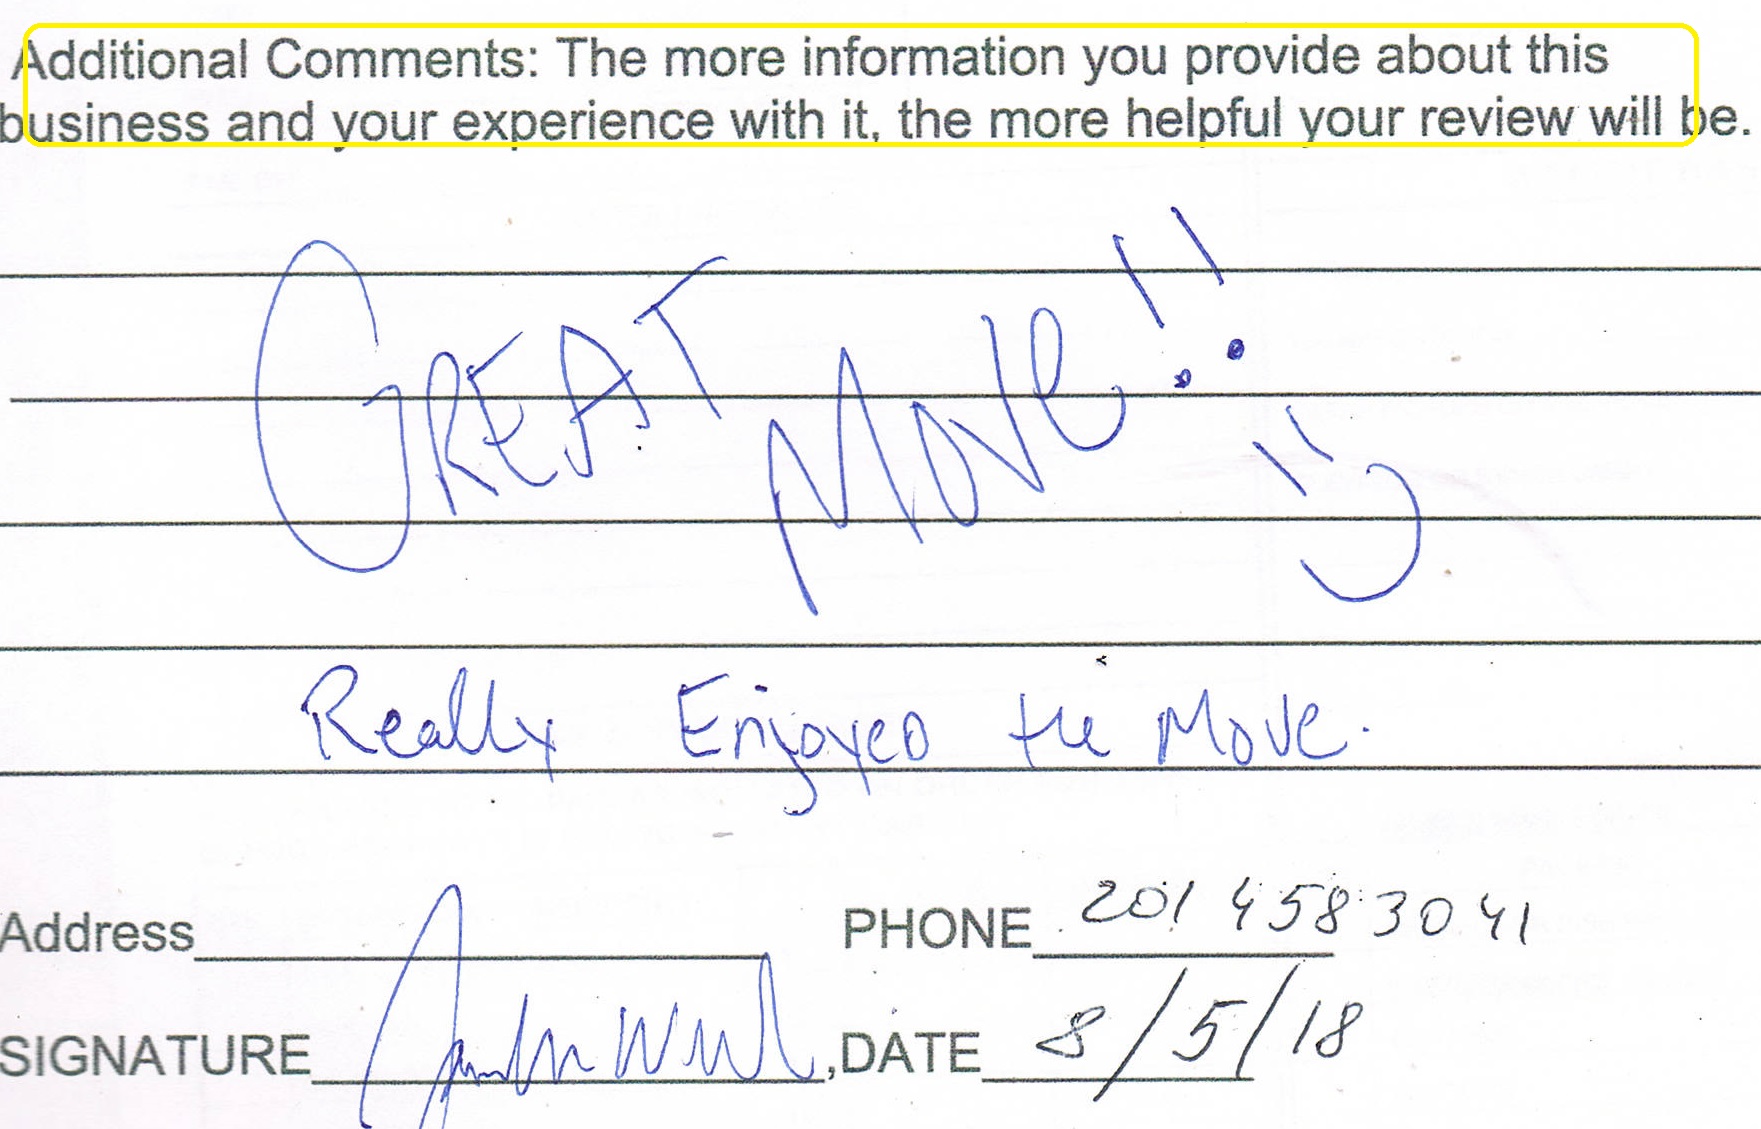 Additional Comments: The more information you provide about this
business and your experience with it, the more helpful your review will be.
GREAT MOVE!!
Really Enjoyed the Move.
Address PHONE 201 458 3041
SIGNATURE , DATE 8/5/18